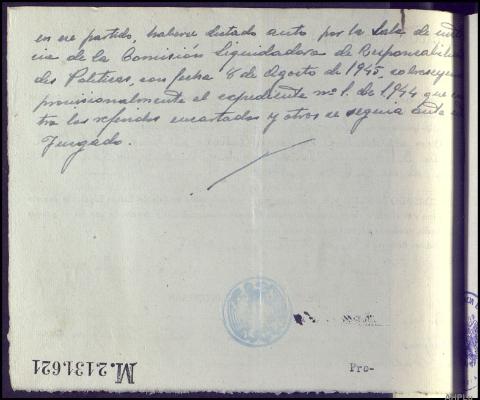 en ese partido, haberse dictado auto por la Sala de
cia de la Comisión Liquidadora de Responsabilida
des Políticas, con fecha 8 de Agosto de 1945, sobreseyen
provisionalmente el expediente nº 1. de 1.944 que
tra los referidos encartados y otros se seguia ante
Juzgado.
M.2131,621
Pro-
AHPLO